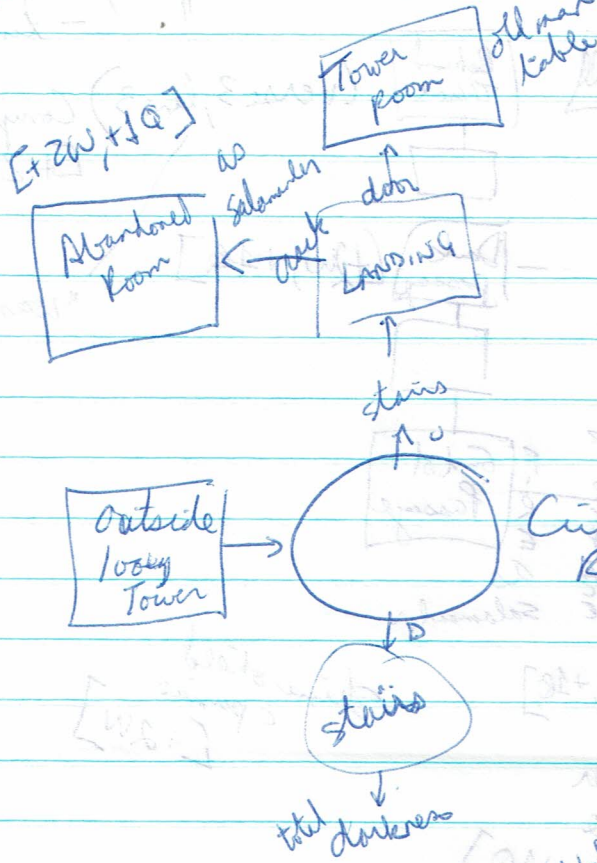 Tower
Room
old man
table
[+2W, +1Q]
as
salamander
door
Abandoned
Room
LANDING
stairs
U
Outside
Tower
D
stairs
total darkness